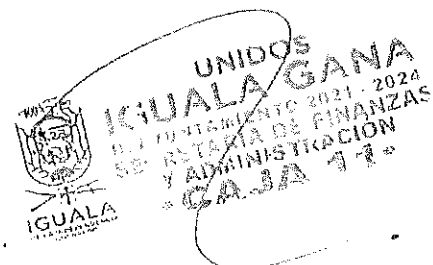 UNIDOS
IGUALA GANA
H. AYUNTAMIENTO 2021 - 2024
SECRETARIA DE FINANZAS
Y ADMINISTRACION
CAJA 11
IGUALA